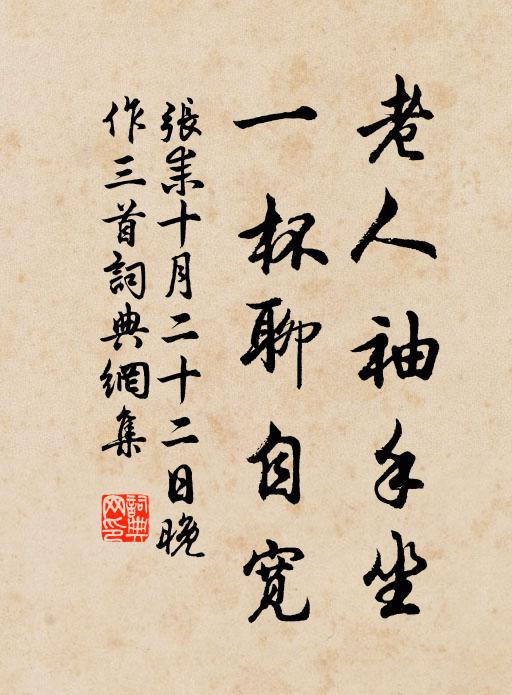 老人袖手坐
一杯聊自寬
張耒十月二十二日晚
作三首詞典網集
詞典
网印